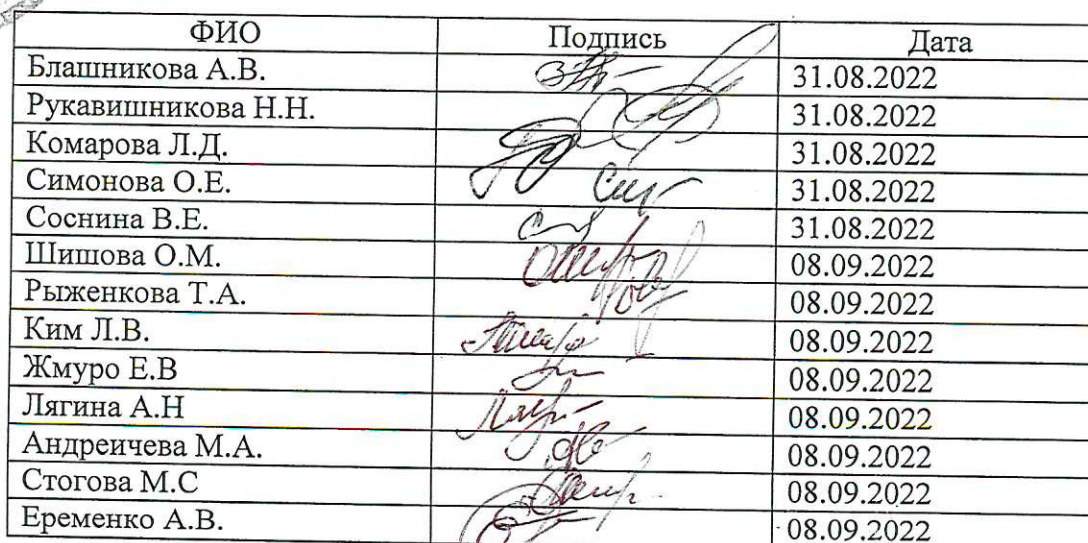 ФИО Подпись Дата
Блашникова А.В. 31.08.2022
Рукавишникова Н.Н. 31.08.2022
Комарова Л.Д. 31.08.2022
Симонова О.Е. 31.08.2022
Соснина В.Е. 31.08.2022
Шишова О.М. 08.09.2022
Рыженкова Т.А. 08.09.2022
Ким Л.В. 08.09.2022
Жмуро Е.В 08.09.2022
Лягина А.Н 08.09.2022
Андреичева М.А. 08.09.2022
Стогова М.С 08.09.2022
Еременко А.В. 08.09.2022